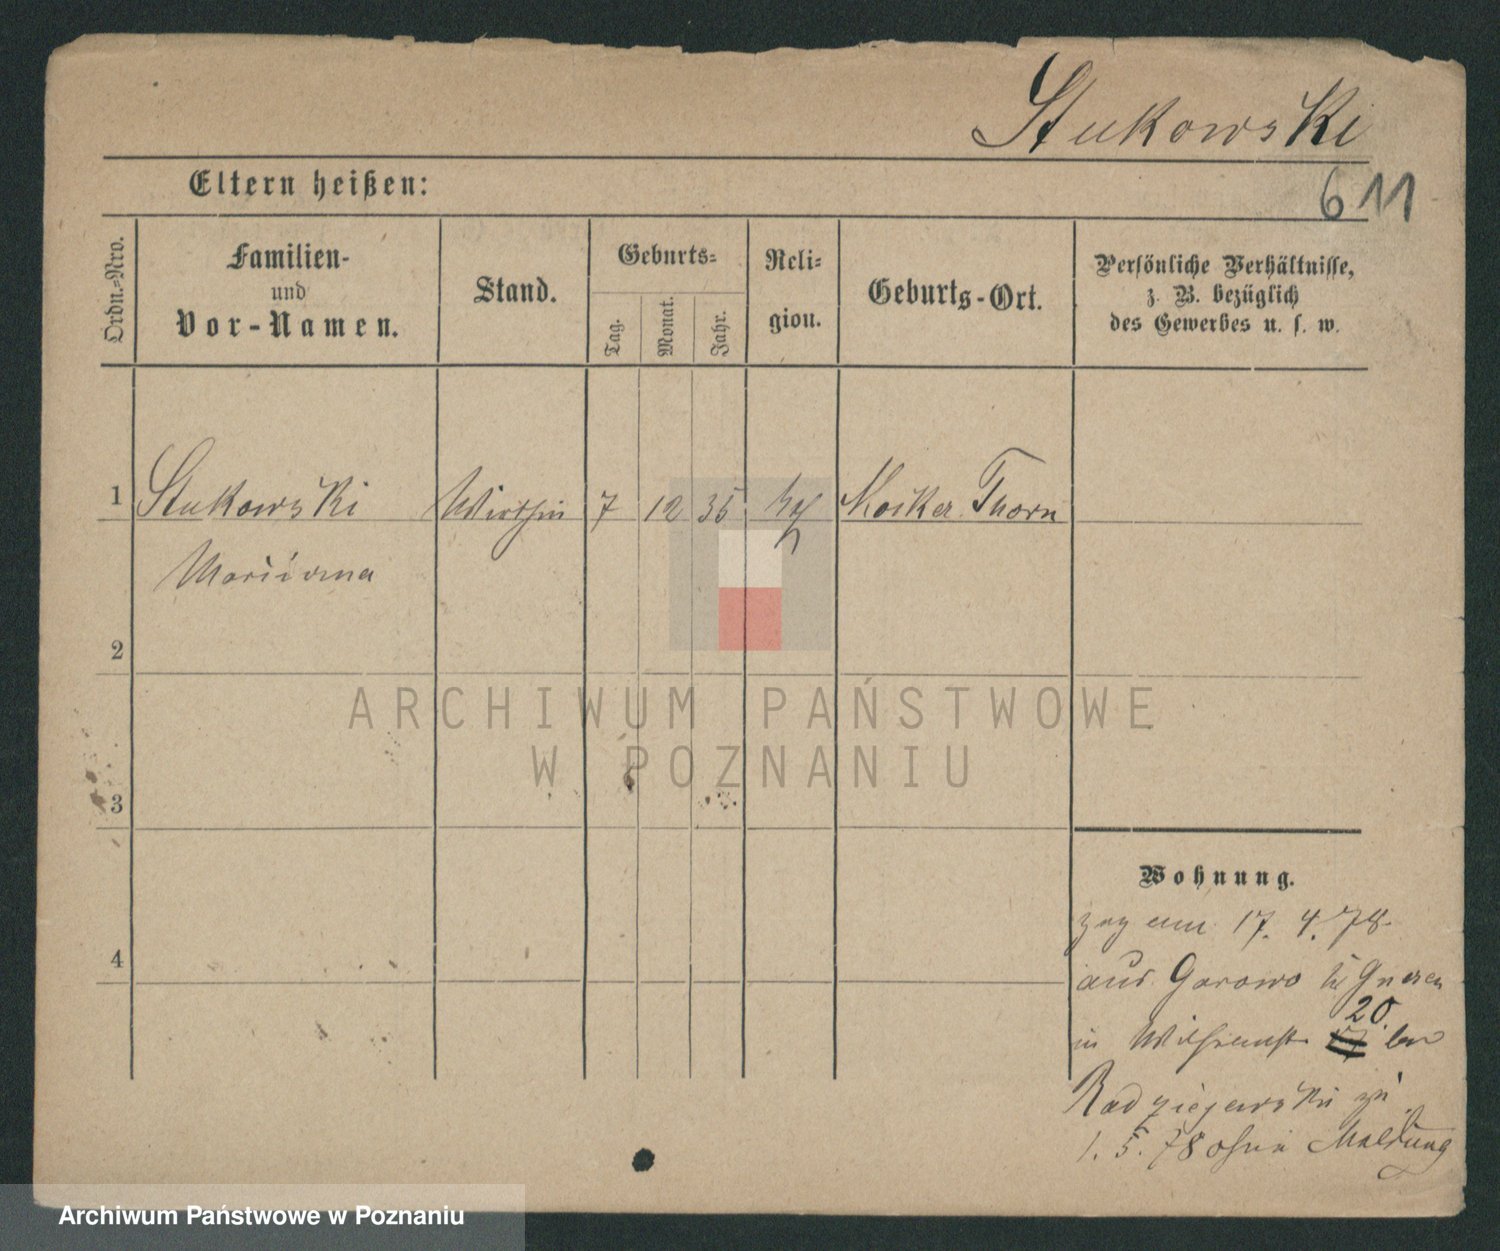 Stukowski
Eltern heißen:
611
Ordn.-Nro.
Familien-
und
Vor-Namen.
Stand.
Geburts-
Tag.
Monat.
Jahr.
Reli-
gion.
Geburts-Ort.
Persönliche Verhältnisse,
z. B. bezüglich
des Gewerbes u. s. w.
1 Stukowski Wirthin 7 12 35 Mocker Thorn
Marianna
2
3
4
Wohnung.
zog am 17. 4. 78.
aus Gorowo bei Gnesen
20.
in Wilhelmst bei
Radziejewski zu
1. 5. 78 ohne Meldung
ARCHIWUM PAŃSTWOWE
W POZNANIU
Archiwum Państwowe w Poznaniu